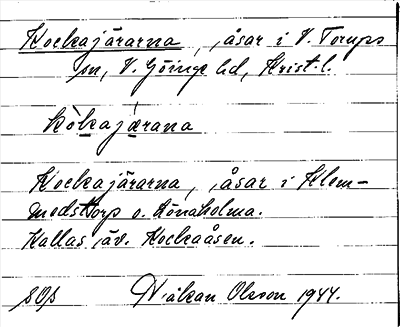 Kockajärarna, ,åsar i V. Torups
sn, V. Göinge hd, Krist. l.
kòkajærana
Kockajärarna, ,åsar i Klem-
medstorp o. Lönaholma.
Kallas äv. Kockaåsen.
SOp Håkan Olsson 1944.